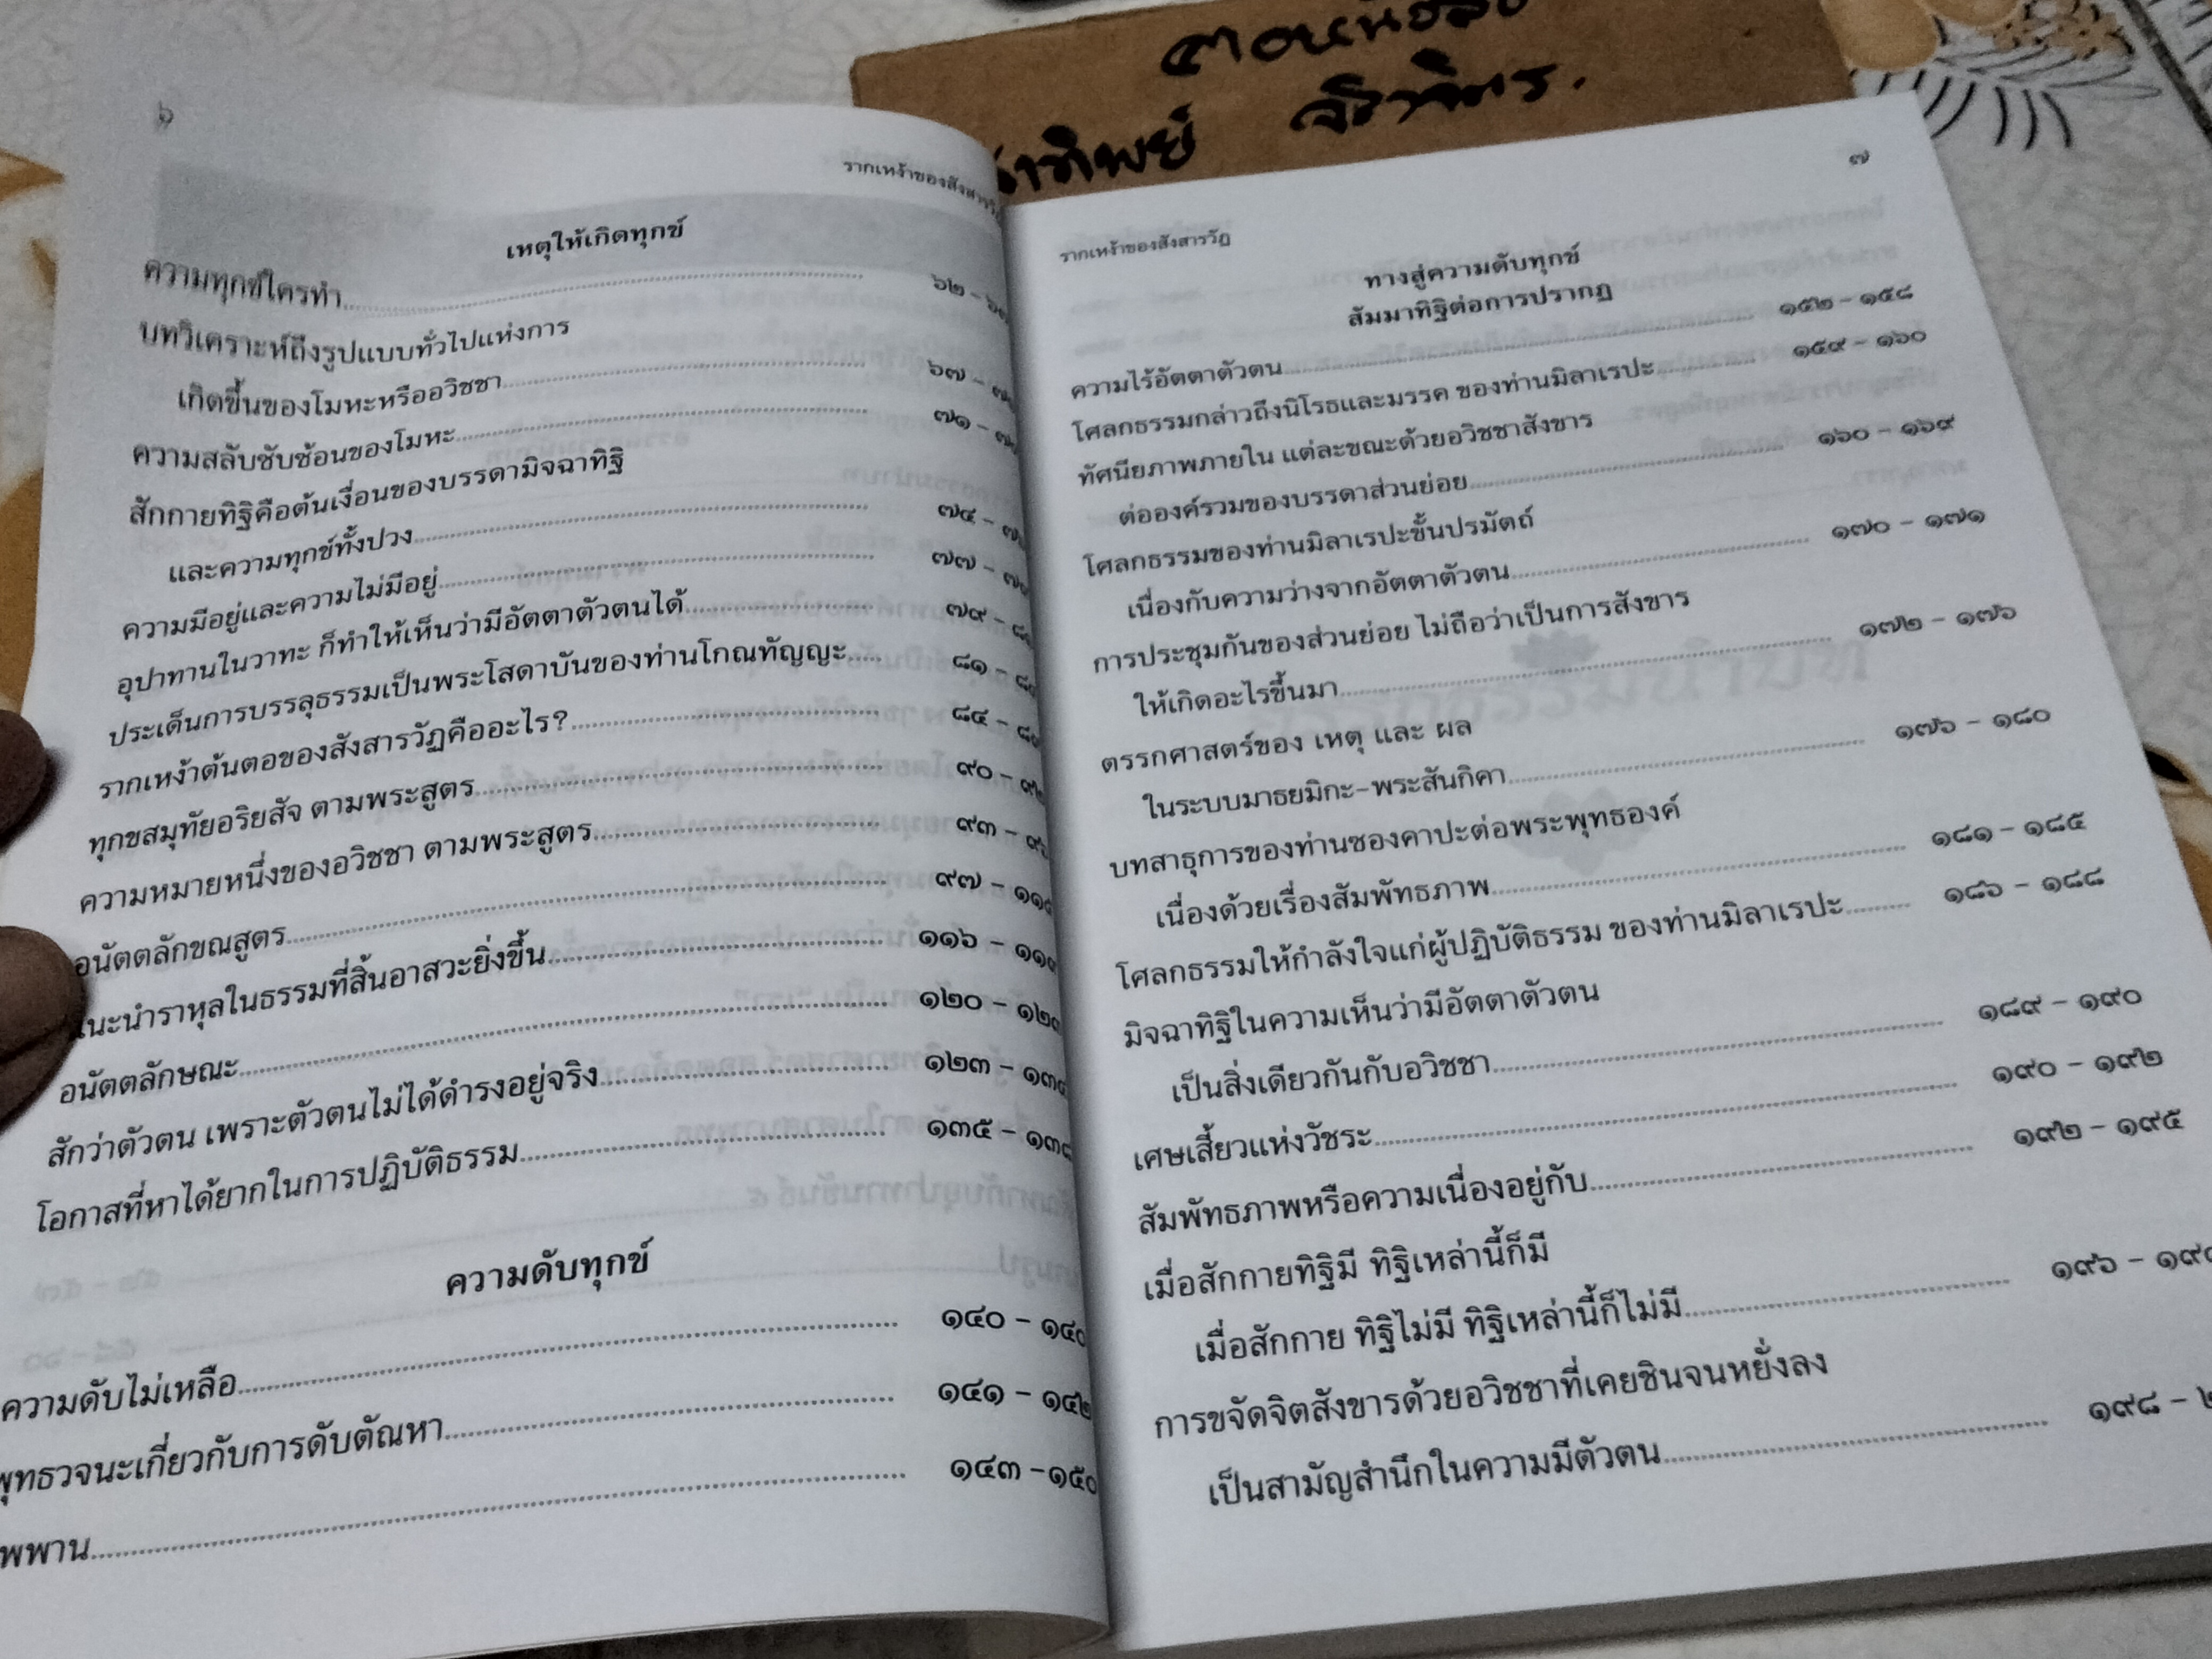 ๖
รากเหง้าของสังสารวัฏ
เหตุให้เกิดทุกข์
ความทุกข์ใครทำ ๖๒ -
บทวิเคราะห์ถึงรูปแบบทั่วไปแห่งการ
เกิดขึ้นของโมหะหรืออวิชชา ๖๗ -
ความสลับซับซ้อนของโมหะ ๗๑ -
สักกายทิฐิคือต้นเงื่อนของบรรดามิจฉาทิฐิ
และความทุกข์ทั้งปวง ๗๔ -
ความมีอยู่และความไม่มีอยู่ ๗๗ -
อุปาทานในวาทะ ก็ทำให้เห็นว่ามีอัตตาตัวตนได้ ๗๙ -
ประเด็นการบรรลุธรรมเป็นพระโสดาบันของท่านโกณทัญญะ ๘๑ -
รากเหง้าต้นตอของสังสารวัฏคืออะไร? ๘๔ -
ทุกขสมุทัยอริยสัจ ตามพระสูตร ๙๐ -
ความหมายหนึ่งของอวิชชา ตามพระสูตร ๙๓ -
อนัตตลักขณสูตร ๙๗ -
แนะนำราหุลในธรรมที่สิ้นอาสวะยิ่งขึ้น ๑๑๖ -
อนัตตลักษณะ ๑๒๐ -
สักว่าตัวตน เพราะตัวตนไม่ได้ดำรงอยู่จริง ๑๒๓ -
โอกาสที่หาได้ยากในการปฏิบัติธรรม ๑๓๕ - ๑๓๘
ความดับทุกข์
ความดับไม่เหลือ ๑๔๐ - ๑๔๐
พุทธวจนะเกี่ยวกับการดับตัณหา ๑๔๑ - ๑๔๒
พพาน ๑๔๓ -๑๕๐
าทิพย์
๗
รากเหง้าของสังสารวัฏ
ทางสู่ความดับทุกข์
สัมมาทิฐิต่อการปรากฏ
ความไร้อัตตาตัวตน ๑๕๒ - ๑๕๘
โศลกธรรมกล่าวถึงนิโรธและมรรค ของท่านมิลาเรปะ ๑๕๙ - ๑๖๐
ทัศนียภาพภายใน แต่ละขณะด้วยอวิชชาสังขาร
ต่อองค์รวมของบรรดาส่วนย่อย ๑๖๐ - ๑๖๙
โศลกธรรมของท่านมิลาเรปะขั้นปรมัตถ์
เนื่องกับความว่างจากอัตตาตัวตน ๑๗๐ - ๑๗๑
การประชุมกันของส่วนย่อย ไม่ถือว่าเป็นการสังขาร
ให้เกิดอะไรขึ้นมา ๑๗๒ - ๑๗๖
ตรรกศาสตร์ของ เหตุ และ ผล
ในระบบมาธยมิกะ-พระสันกิคา ๑๗๖ - ๑๘๐
บทสาธุการของท่านซองคาปะต่อพระพุทธองค์
เนื่องด้วยเรื่องสัมพัทธภาพ ๑๘๑ - ๑๘๕
โศลกธรรมให้กำลังใจแก่ผู้ปฏิบัติธรรม ของท่านมิลาเรปะ ๑๘๖ - ๑๘๘
มิจฉาทิฐิในความเห็นว่ามีอัตตาตัวตน
เป็นสิ่งเดียวกันกับอวิชชา ๑๘๙ - ๑๙๐
เศษเสี้ยวแห่งวัชระ ๑๙๐ - ๑๙๒
สัมพัทธภาพหรือความเนื่องอยู่กับ ๑๙๒ - ๑๙๕
เมื่อสักกายทิฐิมี ทิฐิเหล่านี้ก็มี
เมื่อสักกาย ทิฐิไม่มี ทิฐิเหล่านี้ก็ไม่มี ๑๙๖ -
การขจัดจิตสังขารด้วยอวิชชาที่เคยชินจนหยั่งลง
เป็นสามัญสำนึกในความมีตัวตน ๑๙๘ -